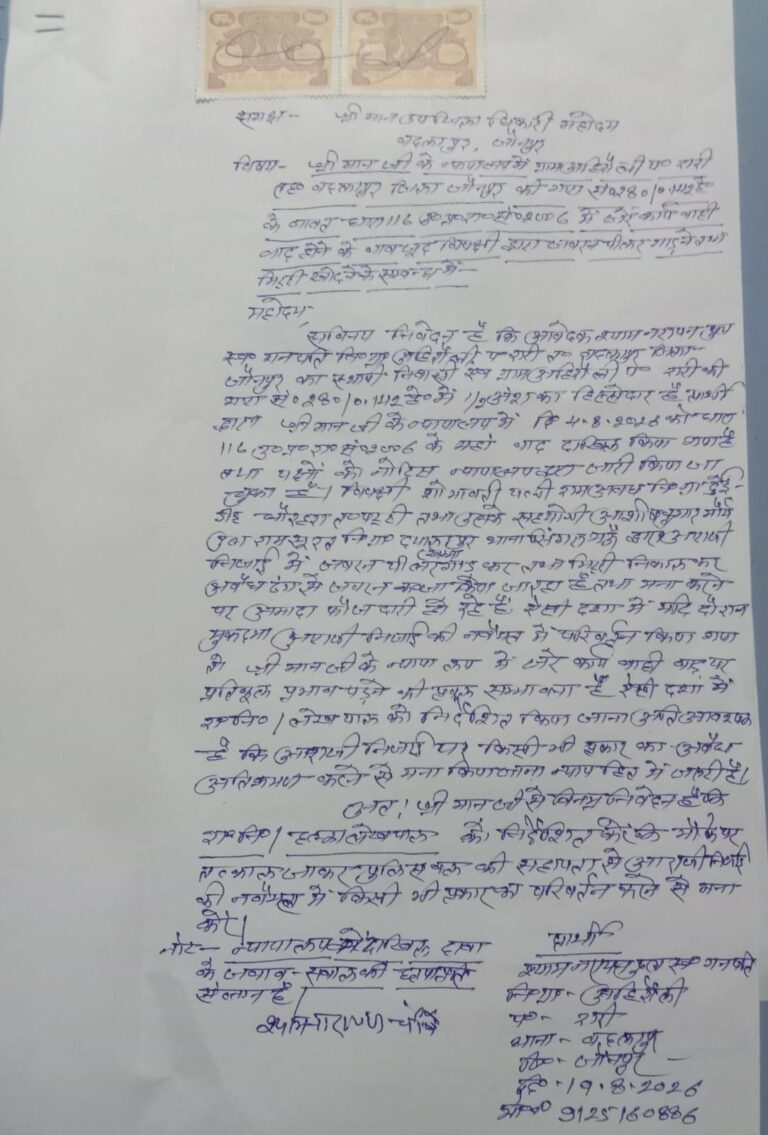 समक्ष- श्री मान उप जिला धिकारी महोदय
बदलापुर, जौनपुर
विषय- श्री मान जी के न्यायालय में ग्राम अहिरौली प० रारी
तह० बदलापुर जिला जौनपुर की गाटा सं० 280/0.142हे०
के बावत धारा 116 उ०प्र०रा०सं० 2006 में जेरे कार्य वाही
वाद होने के बावजूद विपक्षी द्वारा जबरन पीलर गाड़ने तथा
मिट्टी खोदने के सम्बन्ध में-
महोदय,
सविनय निवेदन है कि आवेदक श्याम नरायन पुत्र
स्व० गनपति नि०ग्रा० अहिरौली प० रारी त० बदलापुर जिला-
जौनपुर का स्थायी निवासी एवं ग्राम अहिरौली प० रारी की
गाटा सं० 280/0.142हे० में 1/2 अंश का हिस्सेदार है प्रार्थी
द्वारा श्री मान जी के न्यायालय में दि० 4-8-2026 को धारा
116 उ०प्र०रा०सं० 2006 के यहां वाद दाखिल किया गया है
तथा पक्षों को नोटिस न्यायालय द्वारा जारी किया जा
चुका है। विपक्षी शोभावती पत्नी राम अवध नि०ग्रा०
तथा उसके सहयोगी आशीष कुमार मौर्य
पुत्र राम सूरत नि०ग्रा० थाना सिंगरामऊ द्वारा आराजी
निजाई में जबरन पीलर गाड़ कर तथा मिट्टी निकाल कर
अवैध ढंग से जबरन कब्जा किया जा रहा है तथा मना करने
पर आमादा फौजदारी हो रहे हैं. ऐसी दशा में यदि दौरान
मुकदमा आराजी निजाई की नवैयत में परिवर्तन किया गया
तो श्री मान जी के न्यायालय में जेरे कार्य वाही वाद पर
प्रतिकूल प्रभाव पड़ने की प्रबल सम्भावना है ऐसी दशा में
रा०नि०/लेखपाल को निर्देशित किया जाना अति आवश्यक
है कि आराजी निजाई पर किसी भी प्रकार का अवैध
अतिक्रमण करने से मना किया जाना न्याय हित में जरूरी है।
अतः श्री मान जी से विनम्र निवेदन है कि
रा०नि०/हल्का लेखपाल को निर्देशित करें कि मौके पर
तत्काल जाकर पुलिस बल की सहायता से आराजी निजाई
की नवैयत में किसी भी प्रकार का परिवर्तन करने से मना
करें।
नोट- न्यायालय में दाखिल दावा
के जवाब-सवाल की
संलग्न है।
प्रार्थी
श्याम नरायन पुत्र स्व० गनपति
नि०ग्रा०- अहिरौली
प०- रारी
थाना- बदलापुर
जि०- जौनपुर
दि०- 19-8-2026
मो०नं० 9125160886